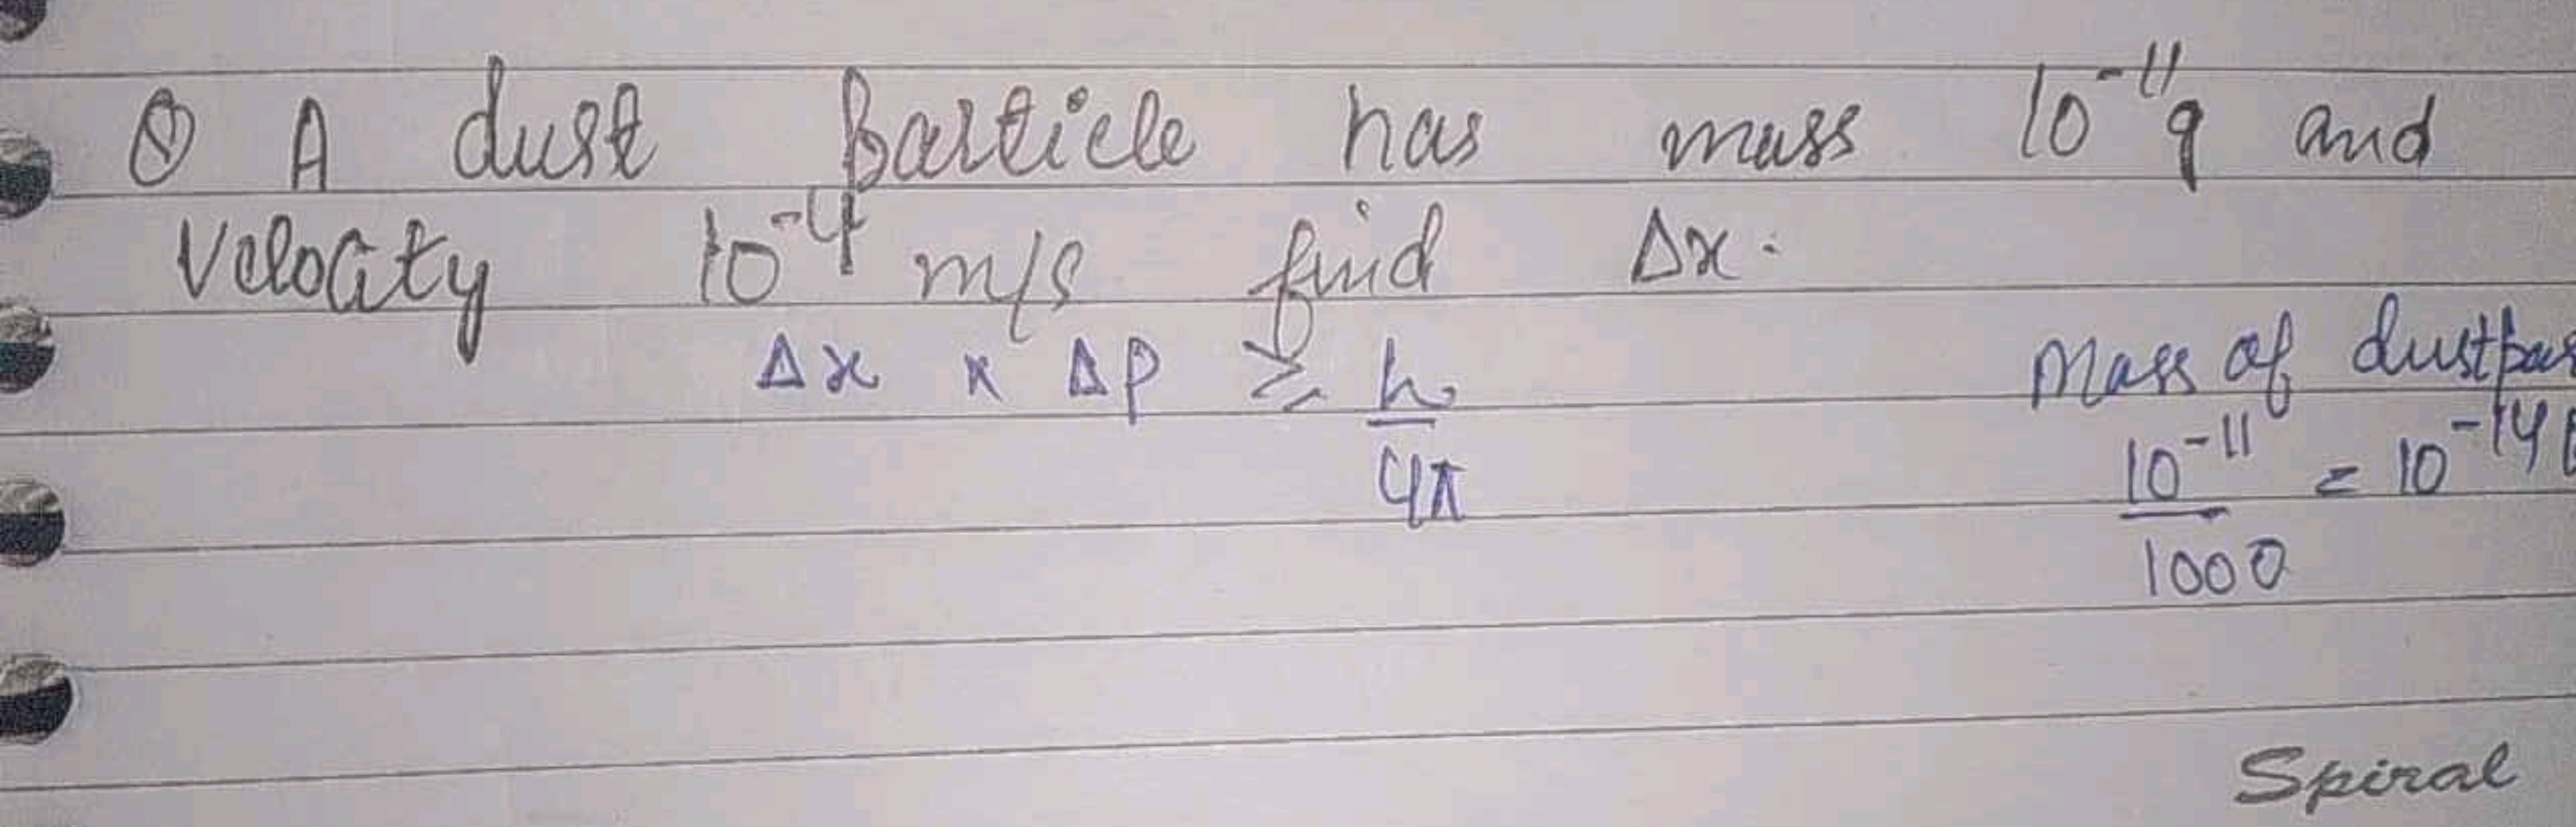 Q A dust particle has mass 10⁻¹¹g and
velocity 10⁻⁴ m/s find Δx.
Δx × Δp ≥ h/4π
Mass of dust
10⁻¹¹/1000 = 10⁻¹⁴
Spiral